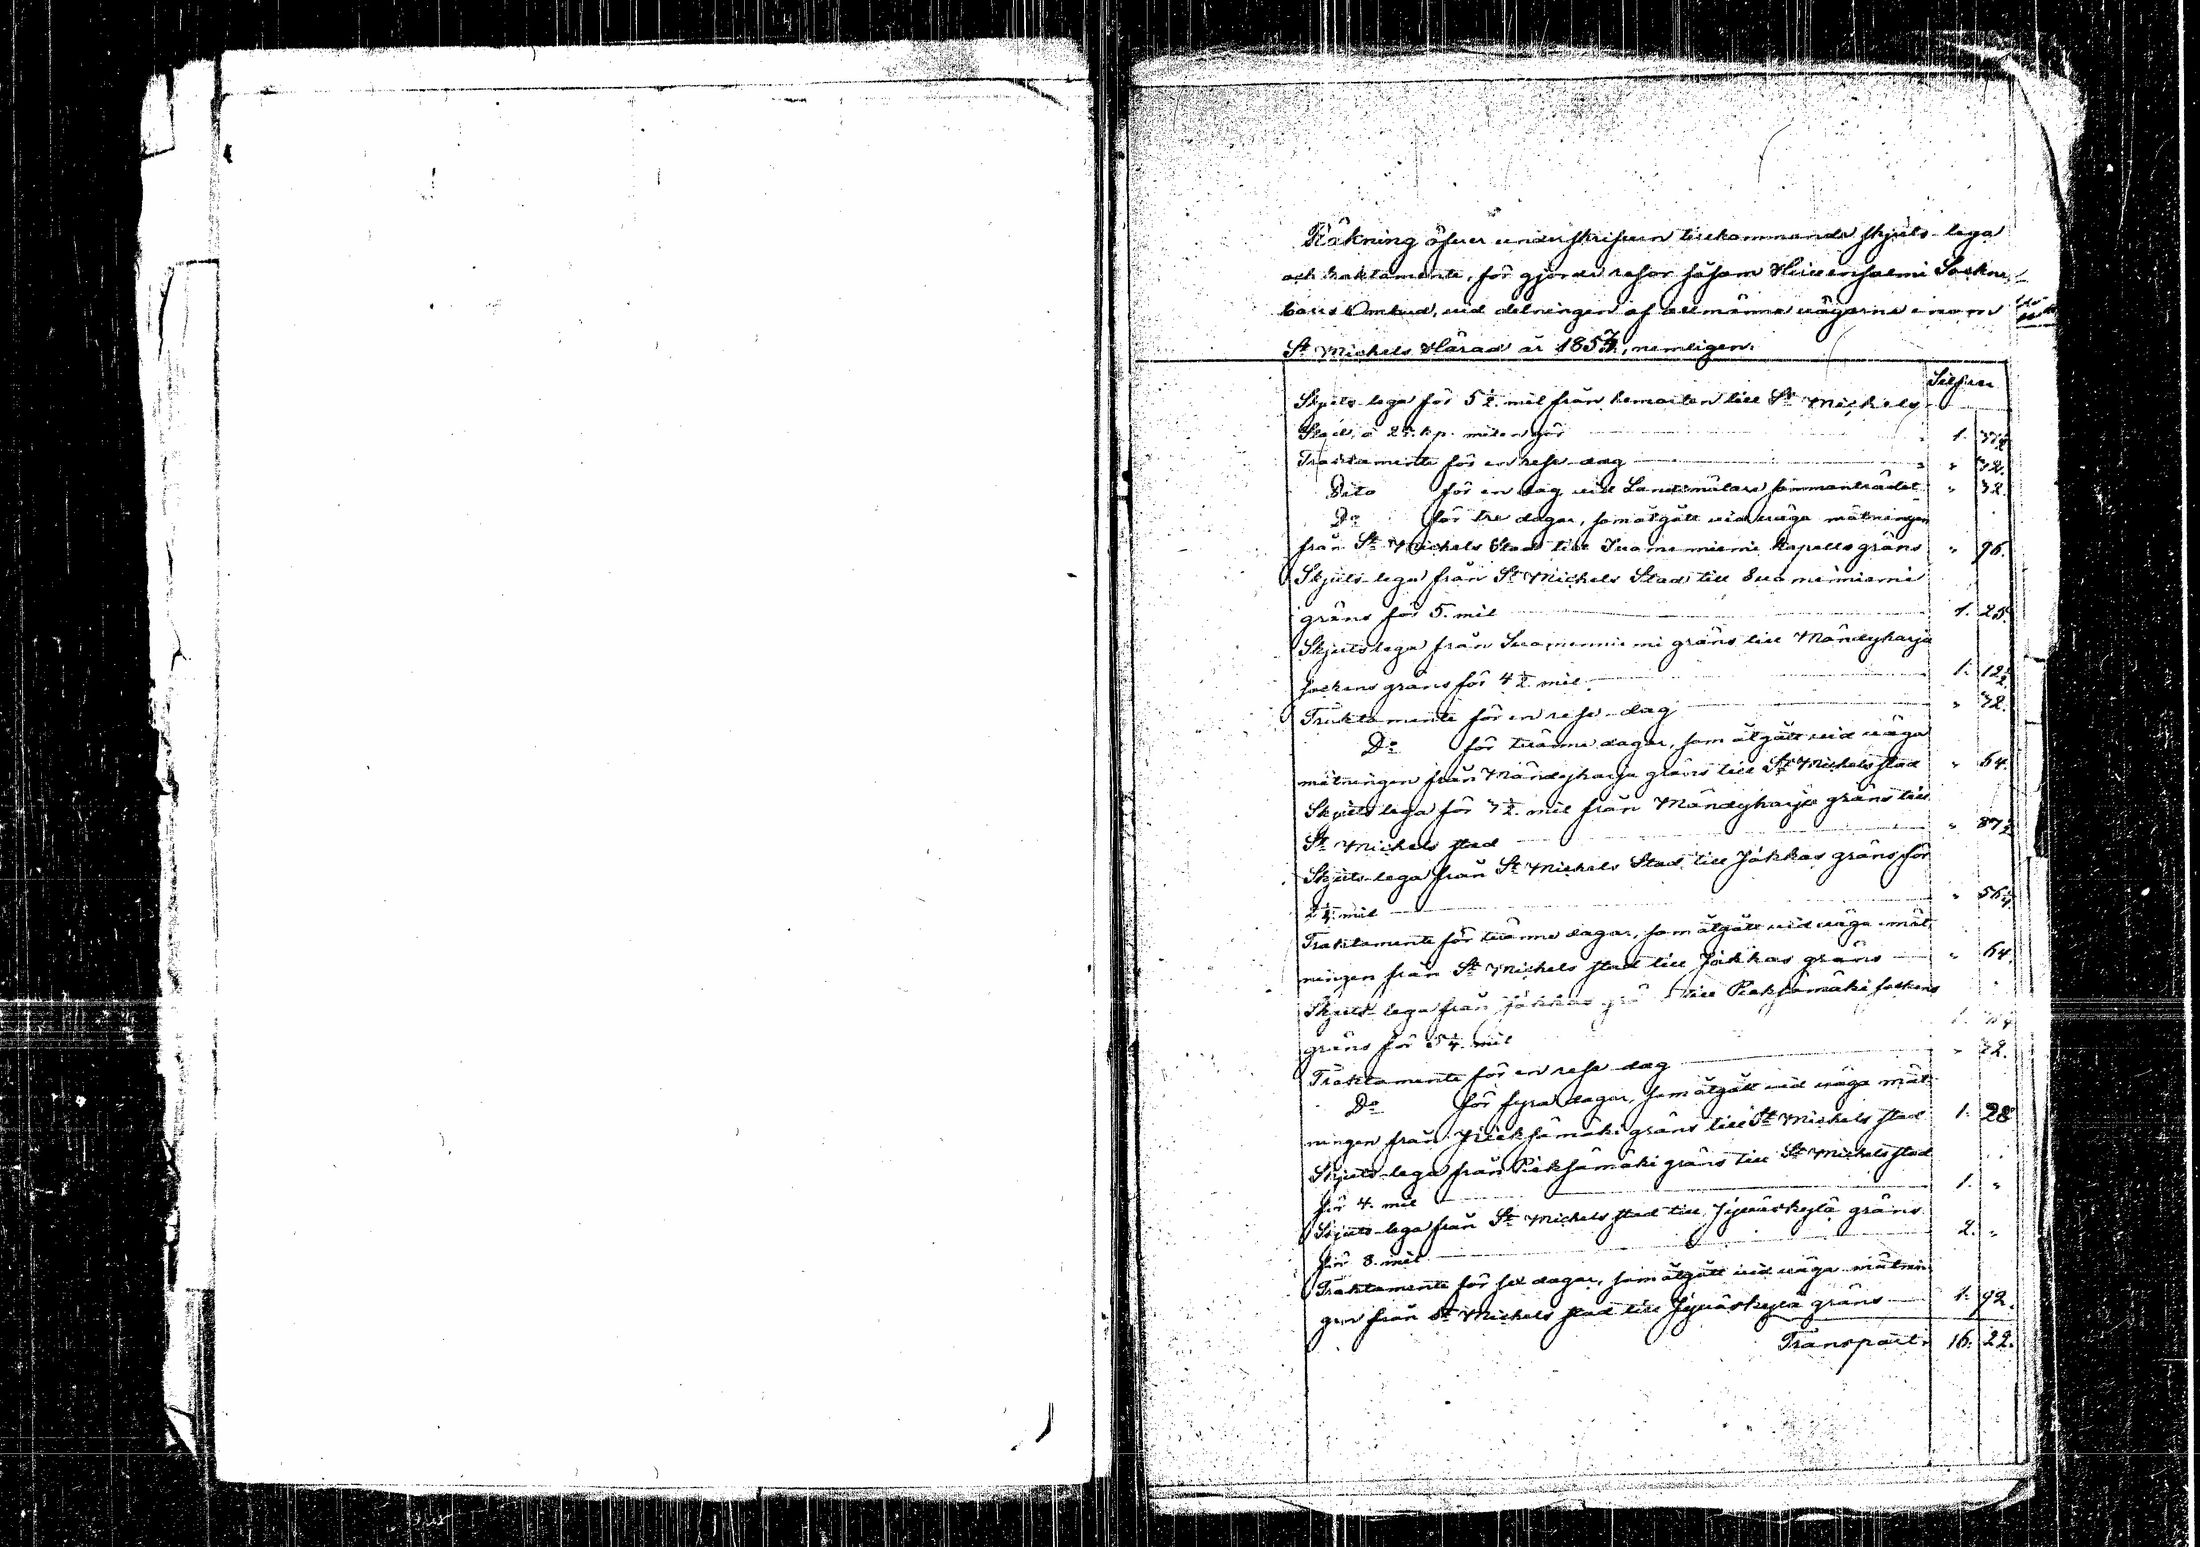 Räkning öfver underskrifven tillkommande skjuts-lega
och traktamente, för gjorde resor såsom Hirvensalmi Sockne-
boers Ombud, vid delningen af allmänna vägarne inom
St Michels Härad år 1857, nemligen.
Silfver
Skjuts lega för 5 1/2 mil från hemorten till St Michels
Stad, à 25 kp. milen gör 1. 37 1/2
Traktamente för en rese-dag " 32.
Dito för en dag vid Landtmätare sammanträdet " 32.
Do för tre dagar, som åtgått vid väga mätningen
från St Michels Stad till Suomenniemi Kapells gräns " 96.
Skjuts-lega från St Michels Stad till Suomenniemi
gräns för 5. mil 1. 25.
Skjutslega från Suomenniemi gräns till Mändyharju
sockens gräns för 4 1/2 mil 1. 12 1/2
Traktamente för en rese-dag " 32.
Do för tvänne dagar, som åtgått vid väga
mätningen från Mändyharju gräns till St Michels stad " 64.
Skjuts lega för 3 1/2 mil från Mändyharju gräns till
St Michels stad " 87 1/2
Skjuts-lega från St Michels Stad till Jokkas gräns för
2 1/4 mil " 56 1/4
Traktamente för tvänne dagar, som åtgått vid väga mät-
ningen från St Michels stad till Jokkas gräns " 64.
Skjuts-lega från Jokkas till Pieksämäki sockens
gräns för mil 1.
Traktamente för en rese-dag " 32.
Do för fyra dagar, som åtgått vid väga mät-
ningen från Pieksämäki gräns till St Michels stad 1. 28
Skjuts-lega från Pieksämäki gräns till St Michels stad
för 4. mil 1. "
Skjuts-lega från St Michels stad till Jyväskylä gräns
för 8. mil 2. "
Traktamente för sex dagar, som åtgått vid väga mätnin-
gen från St Michels stad till Jyväskylä gräns 1. 92.
Transport 16. 22.